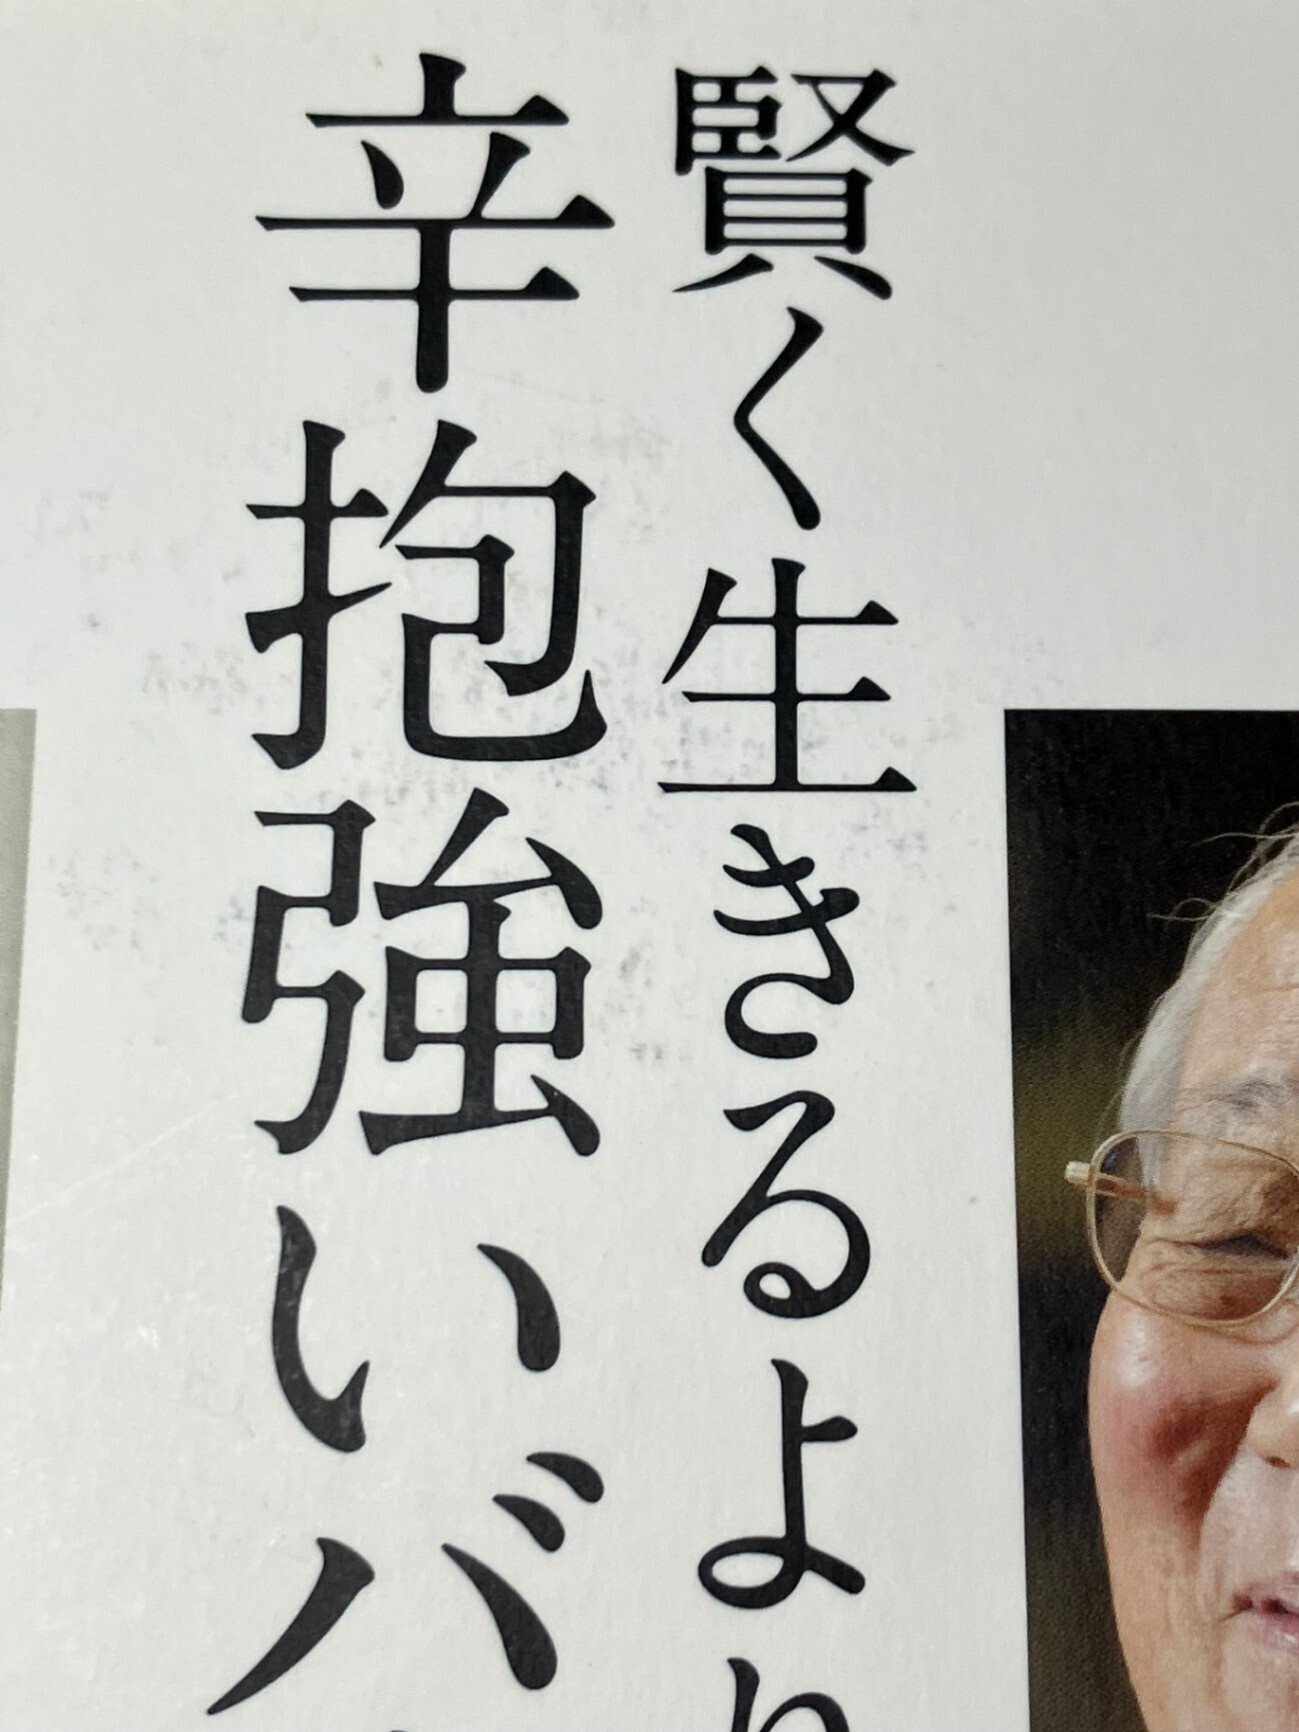 賢く生きるより
辛抱強いバ